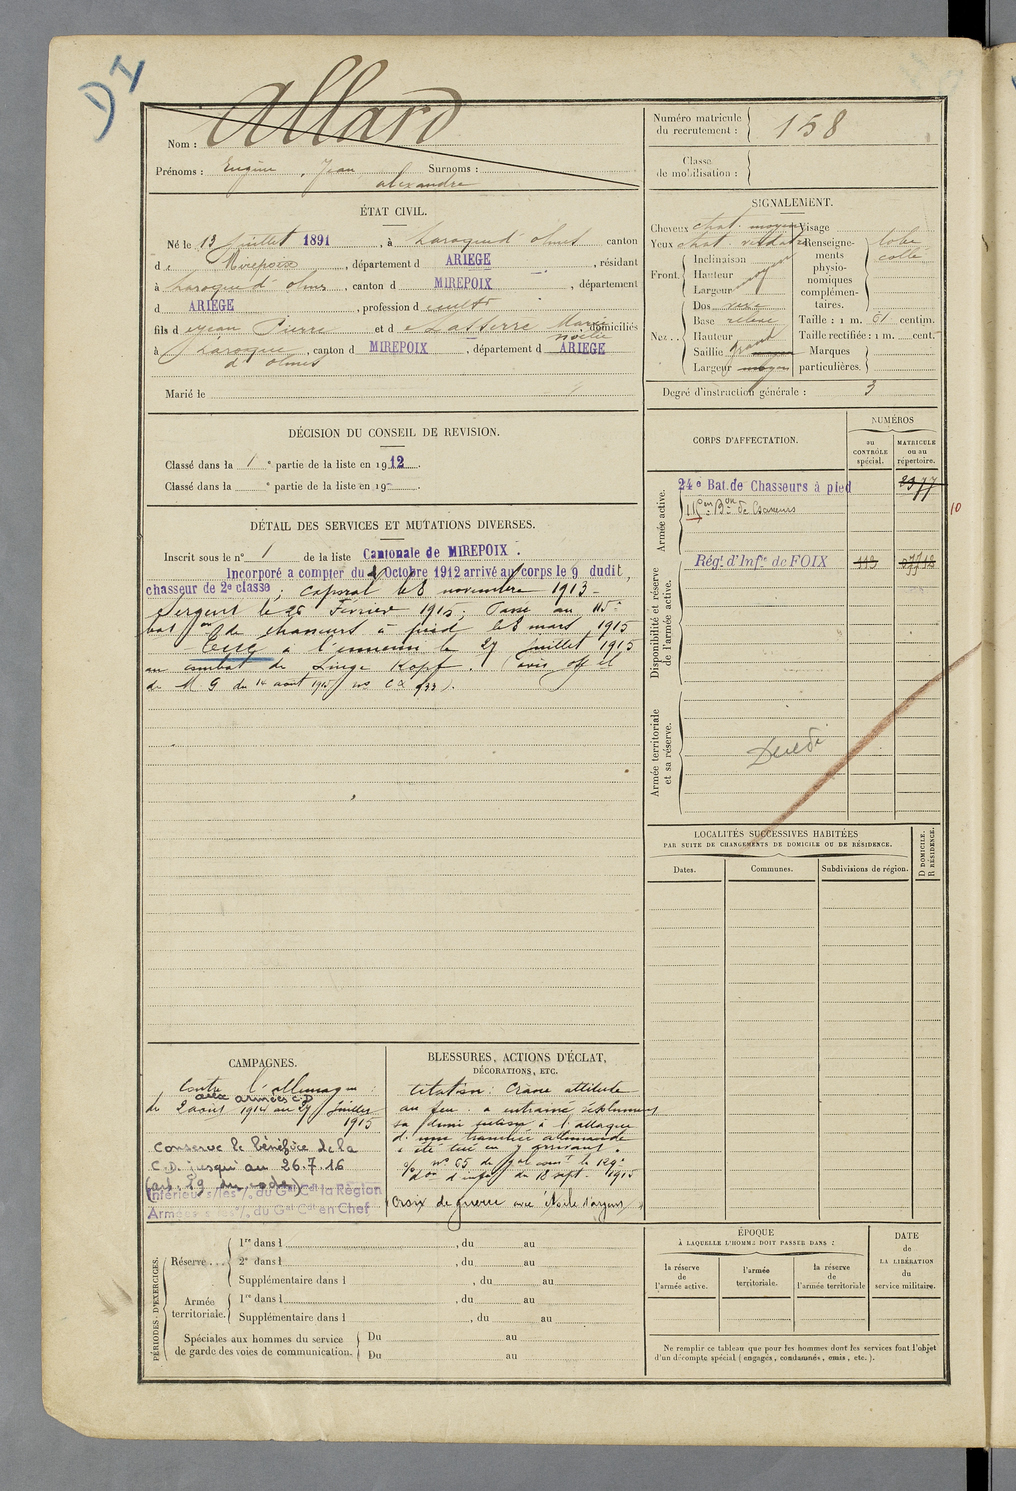 DI
Nom : Allard
Prénoms : Eugène, Jean Surnoms :
alexandre
Numéro matricule
du recrutement : 158
Classe
de mobilisation :
ÉTAT CIVIL.
Né le 13 Juillet 1891, à Laroque d'olmes canton
de Mirepoix, département d ARIEGE, résidant
à Laroque d'olmes, canton d MIREPOIX, département
d ARIEGE, profession de cultr
fils de Jean Pierre et de Lasserre Marie domiciliés
Noélie
à Laroque, canton d MIREPOIX, département d ARIEGE
d'olmes
Marié le
SIGNALEMENT.
Cheveux chat. moyen Visage
Yeux chat. verdâtre Renseigne-
ments
physio-
nomiques
complémen-
taires.
lobe
collé
Front. Inclinaison
Hauteur moyen
Largeur
Nez. Dos vexe
Base relevé
Hauteur
Saillie grand
Largeur moyen
Taille : 1 m. 61 centim.
Taille rectifiée : 1 m. cent.
Marques
particulières.
Degré d'instruction générale : 3
DÉCISION DU CONSEIL DE REVISION.
Classé dans la 1e partie de la liste en 1912.
Classé dans la e partie de la liste en 19
DÉTAIL DES SERVICES ET MUTATIONS DIVERSES.
Inscrit sous le n° 1 de la liste Cantonale de MIREPOIX.
Incorporé a compter du Octobre 1912 arrivé au corps le 9 dudit,
chasseur de 2e classe; caporal le 8 novembre 1913 -
Sergent le 26 Février 1915; Passé au 115e
bat on de chasseurs à pied le 8 mars 1915
Tué à l'ennemi le 27 Juillet 1915
au combat de Linge Kopf. (avis off el
de M G du 14 août 1915 no
CORPS D'AFFECTATION.
NUMÉROS
au
CONTRÔLE
spécial.
MATRICULE
ou au
répertoire.
Armée active.
24e Bat. de Chasseurs à pied 2377
115en Bon de Chasseurs
10
Disponibilité et réserve
de l'armée active.
Régt. d'Infie de FOIX 113
Armée territoriale
et sa réserve.
Décédé
LOCALITÉS SUCCESSIVES HABITÉES
PAR SUITE DE CHANGEMENTS DE DOMICILE OU DE RÉSIDENCE.
D DOMICILE.
R RÉSIDENCE.
Dates. Communes. Subdivisions de région.
CAMPAGNES.
Contre l'allemagne :
aux armées C.D
du 2 aout 1914 au 27 Juillet
1915
Conserve le bénéfice de la
C.D. jusqu'au 26.7.16
(art. 29 du code)
Intérieur s/les % du Gal Cdt la Région
Armées s/les % du Gal Cdt en Chef
BLESSURES, ACTIONS D'ÉCLAT,
DÉCORATIONS, ETC.
Citation : Crane attitude
au feu. a entrainé
sa demi section à l'attaque
d'une tranchée allemande
a été tué en y arrivant.
o/ no 65 de gal comt la 129e
don d'infie du 18 sept. 1915
Croix de guerre avec étoile d'argent
PÉRIODES D'EXERCICES.
Réserve... 1re dans l , du au
2e dans l , du au
Supplémentaire dans l , du au
Armée
territoriale. 1re dans l , du au
Supplémentaire dans l , du au
Spéciales aux hommes du service
de garde des voies de communication. Du au
Du au
ÉPOQUE
À LAQUELLE L'HOMME DOIT PASSER DANS :
la réserve
de
l'armée active.
l'armée
territoriale.
la réserve
de
l'armée territoriale
DATE
de
LA LIBÉRATION
du
service militaire.
Ne remplir ce tableau que pour les hommes dont les services font l'objet
d'un décompte spécial (engagés, condamnés, omis, etc.).